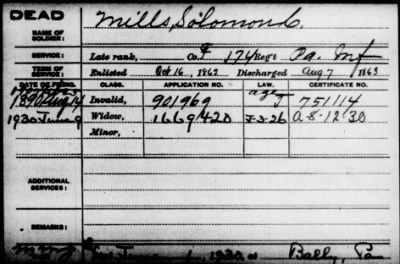 DEAD
NAME OF SOLDIER: Mills, Solomon C.
SERVICE: Late rank, Co. F 174 Reg't Pa. Inf
TERM OF SERVICE: Enlisted Oct. 16, 1862 Discharged Aug 7 1863
DATE OF FILING. CLASS. APPLICATION NO. LAW. CERTIFICATE NO.
1890 Aug 14 Invalid, 901969 J 751114
1930 June 9 Widow, 1669420 5-3-26 A-8-12-30
Minor,
ADDITIONAL SERVICES:
REMARKS:
1930 at Bally, Pa